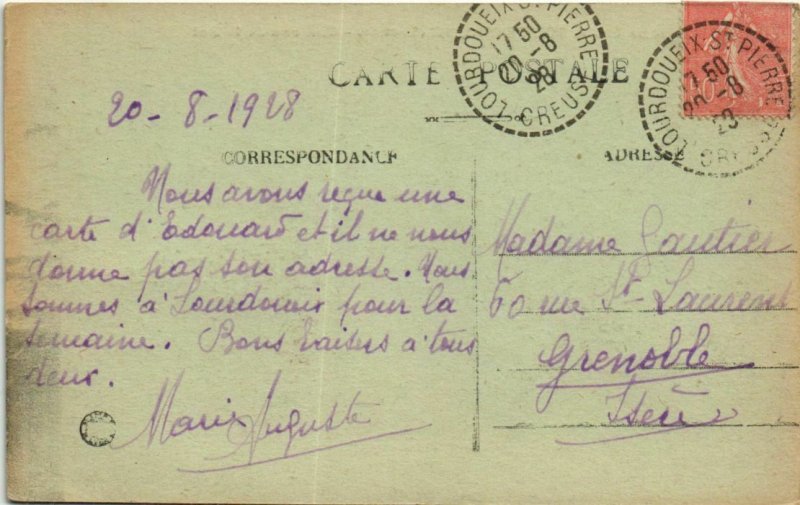 CARTE POSTALE
LOURDOUEIX-ST-PIERRE
17 50
20-8
28
CREUSE
LOURDOUEIX-ST-PIERRE
17 50
20-8
CREUSE
20-8-1928
CORRESPONDANCE
Nous avons reçue une
carte d'Edouard et il ne nous
donne pas son adresse. Nous
sommes à Lourdoueix pour la
semaine. Bons baisers à tous
deux.
Marie Auguste
ADRESSE
Madame Gautier
60 rue St Laurent
Grenoble
Isère